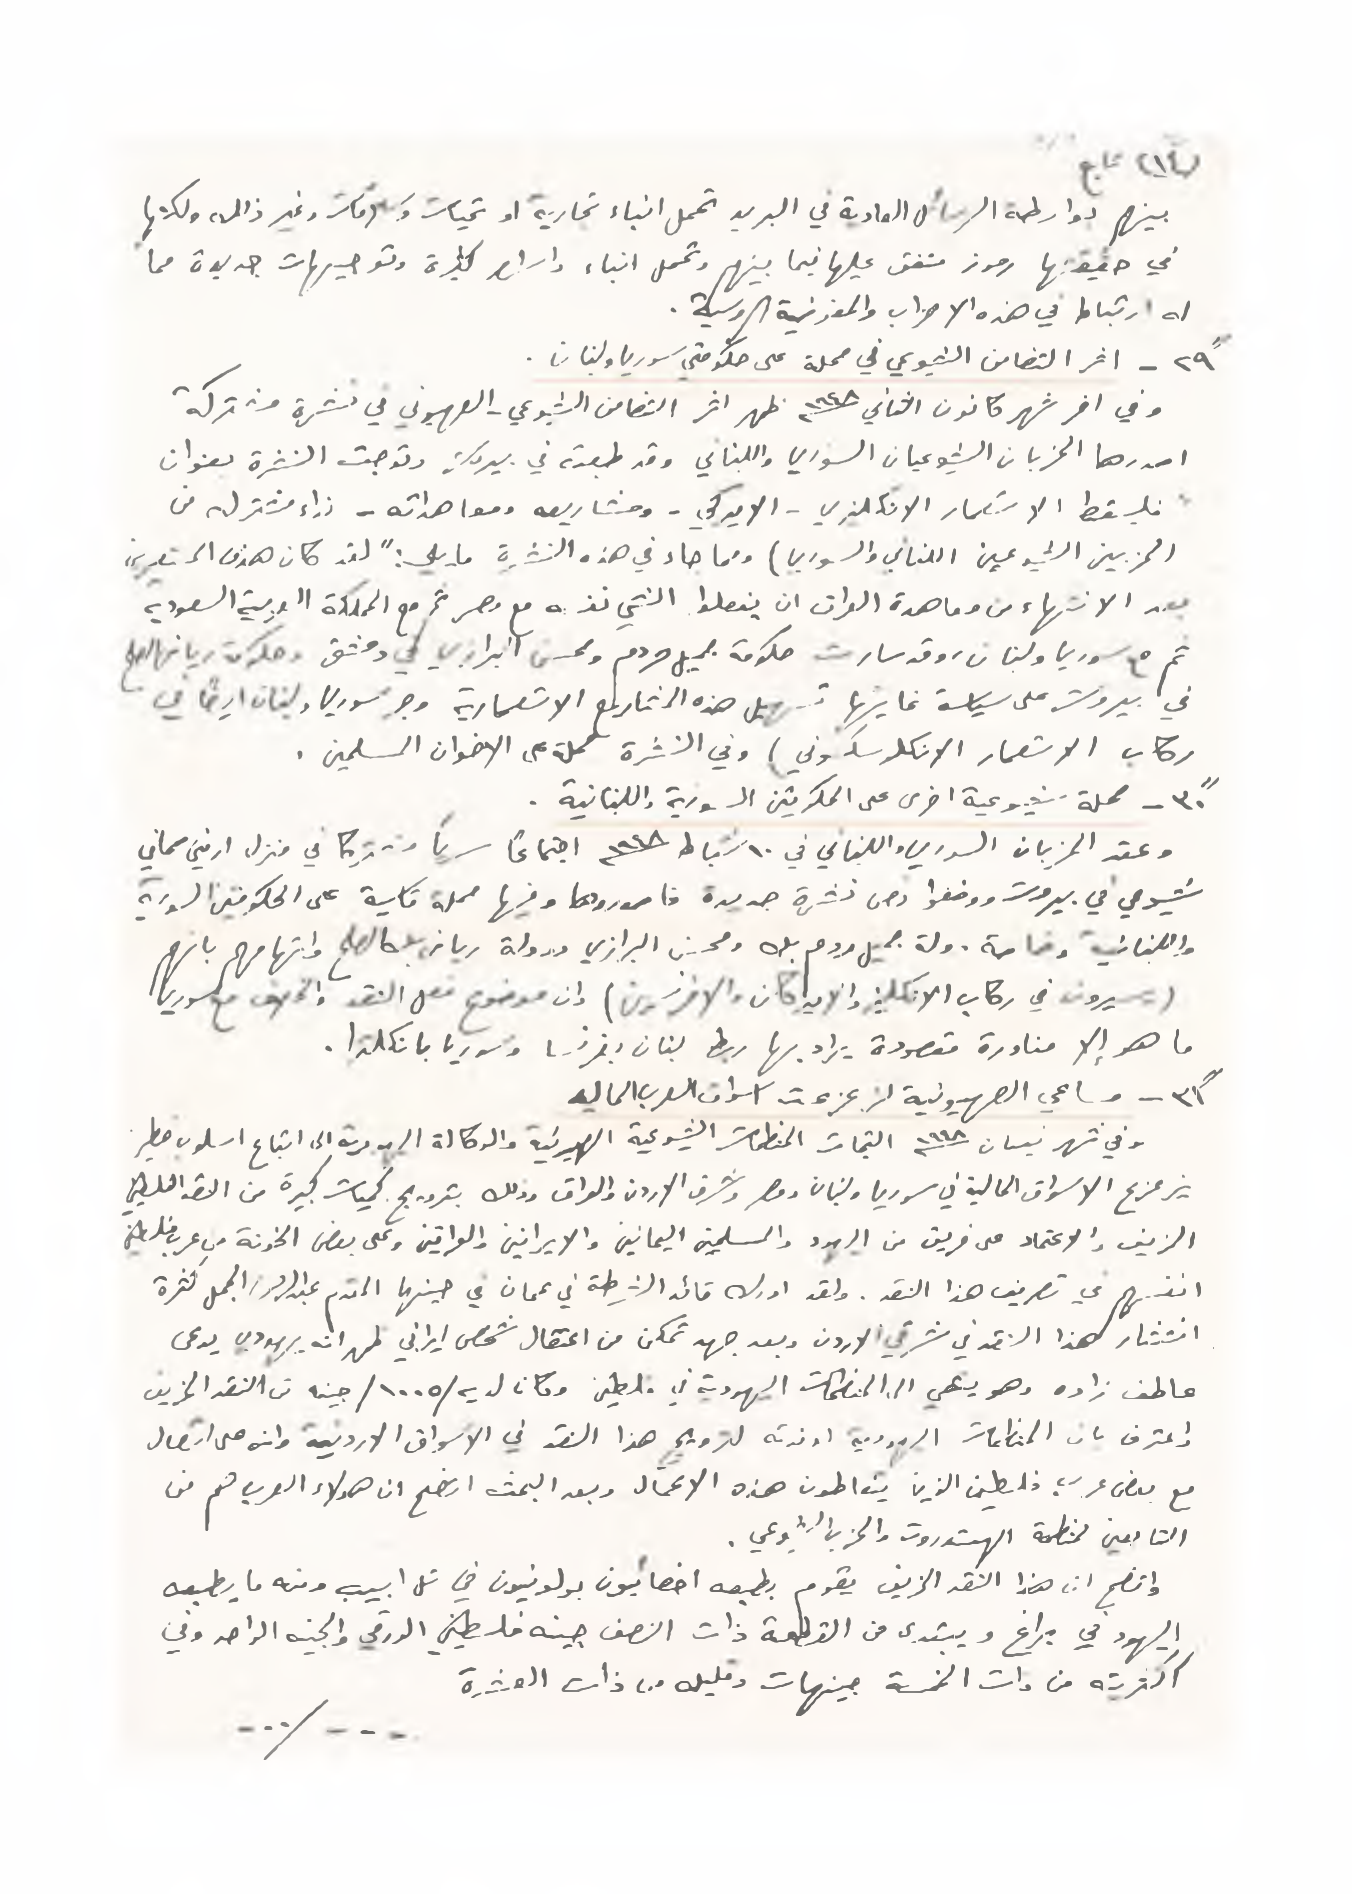 (٢١٤) تابع
بينهم بواسطة الرسائل العادية في البريد تحمل انباء تجارية او تحيات وسلامات وغير ذالك ولكنها
في حقيقتها رموز متفق عليها فيما بينهم وتحمل انباء واسرار كثيرة وتوجيهات جديدة مما
له ارتباط في هذه الاحزاب والمفوضية الروسية .
٢٩ - اثر التضامن الشيوعي في حملة على حكومتي سوريا ولبنان .
وفي اخر شهر كانون الثاني ١٩٤٨ ظهر اثر التضامن الشيوعي - الصهيوني في نشرة مشتركة
اصدرها الحزبان الشيوعيان السوري واللبناني وقد طبعت في بيروت وتوجت النشرة بعنوان
" فليسقط الاستعمار الانكليزي - الاميركي - ومشاريعه ومعاهداته - نداء مشترك من
الحزبين الشيوعيين اللبناني والسوري) ومما جاء في هذه النشرة ما يلي : " لقد كان هدف المستعمرين
بعد الانتهاء من معاهدة العراق ان يفعلوا الشيء نفسه مع مصر ثم مع المملكة العربية السعودية
ثم مع سوريا ولبنان ، وقد سارت حكومة جميل مردم ومحسن البرازي في دمشق وحكومة رياض الصلح
في بيروت على سياسة غايتها تسهيل هذه المشاريع الاستعمارية وجر سوريا ولبنان ايضًا في
ركاب الاستعمار الانكلوسكسوني ) وفي النشرة حملة على الاخوان المسلمين .
٣٠ - حملة شيوعية اخرى على الحكومتين السورية واللبنانية .
وعقد الحزبان السوري واللبناني في ١٠ شباط ١٩٤٨ اجتماعًا سريًا مشتركا في منزل ارمني محامي
شيوعي في بيروت ووضعوا نص نشرة جديدة فاصدروها وفيها حملة قاسية على الحكومتين السورية
واللبنانية وخاصة دولة جميل مردم بك ومحسن البرازي ودولة رياض بك الصلح واتهامهم بانهم
( يسيرون في ركاب الانكليز والاميركان والافرنسيين ) وان موضوع فصل النقد والخلاف مع سوريا
ما هو إلا مناورة مقصودة يراد بها ربط لبنان بفرنسا وسوريا بانكلترا .
٣١ - مساعي الصهيونية لزعزعت اسواق العرب المالية
وفي شهر نيسان ١٩٤٨ التجأت المنظمات الشيوعية الصهيونية والوكالة اليهودية الى اتباع اسلوب خطير
بزعزع الاسواق المالية في سوريا ولبنان ومصر وشرق الاردن والعراق وذلك بترويج كميات كبيرة من النقد الفلسطيني
المزيف والاعتماد على فريق من اليهود والمسلمين اليمانيين والايرانيين والعراقيين وعلى بعض الخونة من عرب فلسطين
انفسهم في تصريف هذا النقد . ولقد ادرك قائد الشرطة في عمان في حينها المقدم الجمل كثرة
انتشار هذا النقد في شرقي الاردن وبعد جهد تمكن من اعتقال شخص ايراني ظهر انه يهودي يدعى
عاطف زاده وهو ينتمي الى المنظمات اليهودية في فلسطين وكان لديه /١٠٠٥/ جنيه من النقد المزيف
واعترف بان المنظمات اليهودية اوفدته لترويج هذا النقد في الاسواق الاردنية وانه على اتصال
مع بعض عرب فلسطين الذين يتعاطون هذه الاعمال وبعد البحث اتضح ان هولاء العرب هم من
التابعين لمنظمة الهستدروت والحزب الشيوعي .
واتضح ان هذا النقد المزيف يقوم بطبعه اخصائيون بولونيون في تل ابيب ومنه ما يطبعه
اليهود في براغ ويبتدى من القطعة ذات النصف جنيه فلسطيني الورقي والجنيه الواحد وفي
اكثريته من ذات الخمسة جنيهات وقليله من ذات العشرة
---/...-